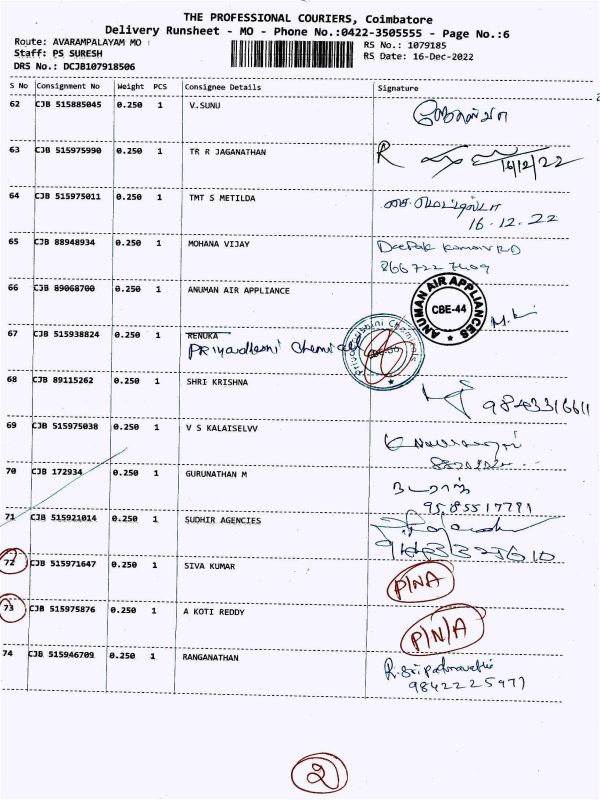 THE PROFESSIONAL COURIERS, Coimbatore
Delivery Runsheet - MO - Phone No.:0422-3505555 - Page No.:6
Route: AVARAMPALAYAM MO
RS No.: 1079185
Staff: PS SURESH
RS Date: 16-Dec-2022
DRS No.: DCJB107918506
S No Consignment No Weight PCS Consignee Details Signature
62 CJB 515885045 0.250 1 V.SUNU
63 CJB 515975990 0.250 1 TR R JAGANATHAN R 16/12/22
64 CJB 515975011 0.250 1 TMT S METILDA
16.12.22
65 CJB 88948934 0.250 1 MOHANA VIJAY Deepak
866722 7409
66 CJB 89068700 0.250 1 ANUMAN AIR APPLIANCE ANUMAN AIR APPLIANCES CBE-44
67 CJB 515938824 0.250 1 RENUKA
Priyadharshini Chemicals
68 CJB 89115262 0.250 1 SHRI KRISHNA 9843316611
69 CJB 515975038 0.250 1 V S KALAISELVV
70 CJB 172934 0.250 1 GURUNATHAN M நடராஜ்
9585517781
71 CJB 515921014 0.250 1 SUDHIR AGENCIES
72 CJB 515971647 0.250 1 SIVA KUMAR P/NA
73 CJB 515975876 0.250 1 A KOTI REDDY P/N/A
74 CJB 515946709 0.250 1 RANGANATHAN R.Sripathmavathi
9842225971
2